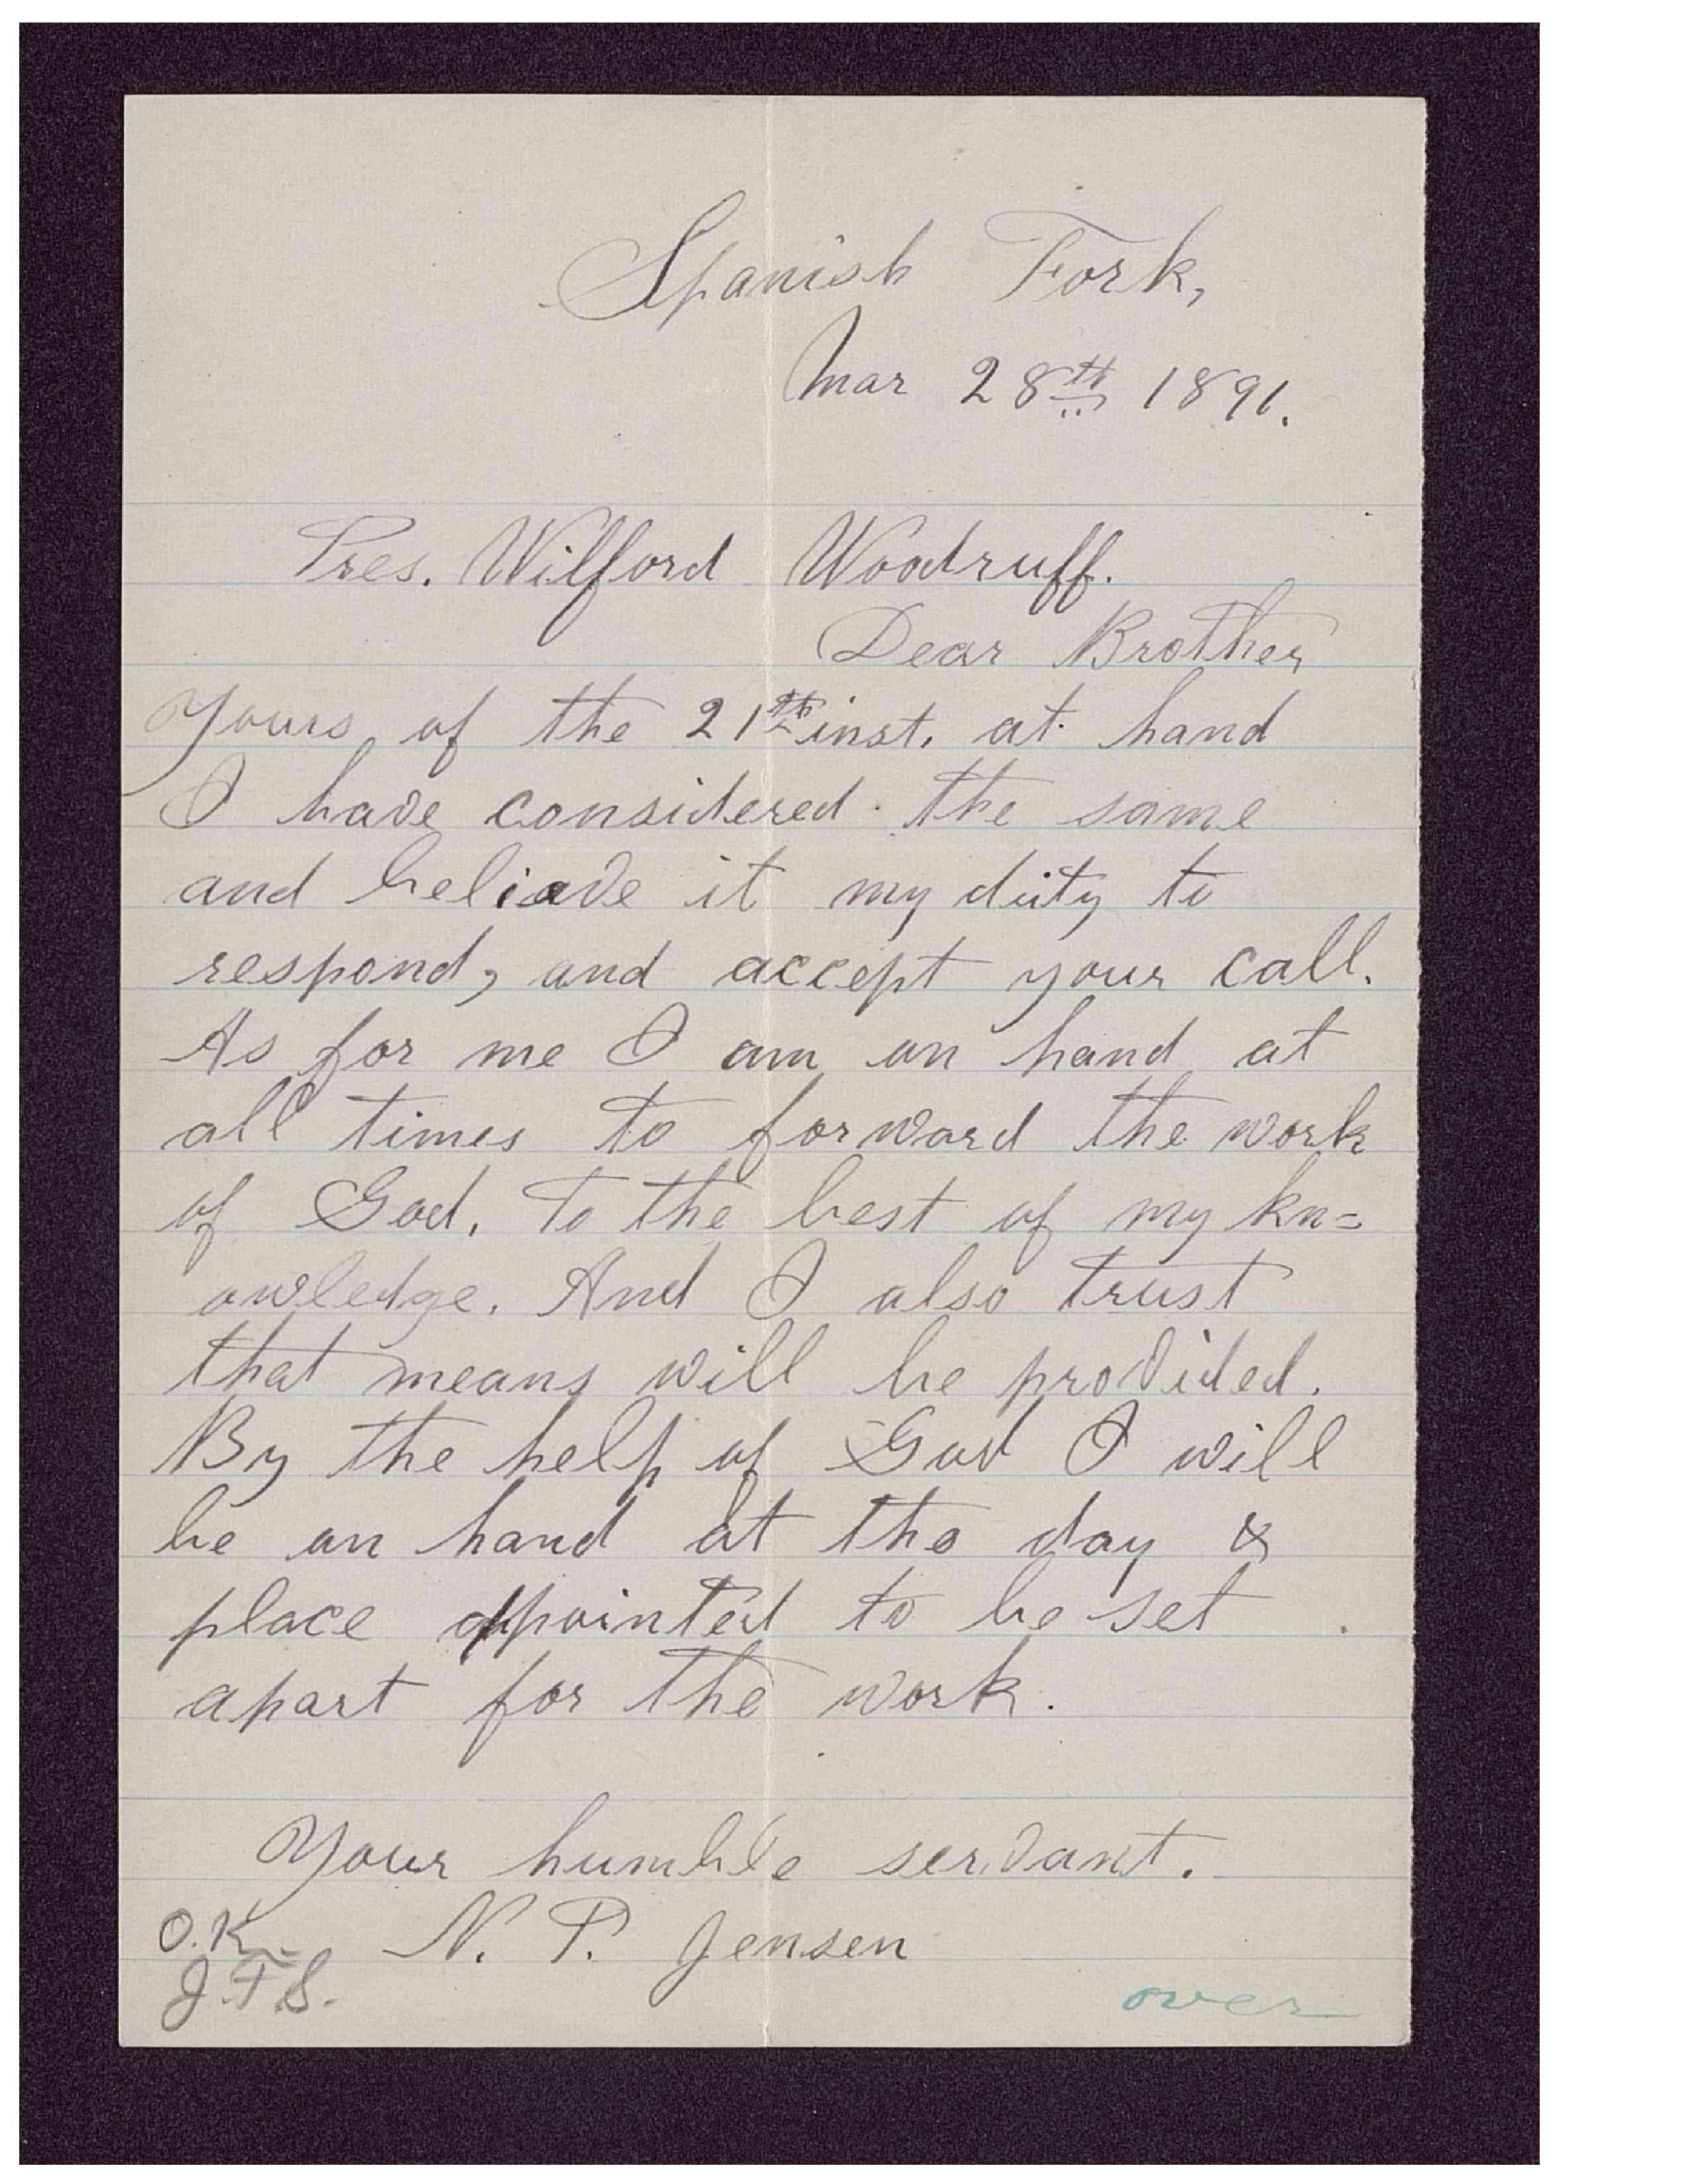 Spanish Fork,
Mar 28th 1891.
Pres. Wilford Woodruff.
Dear Brother
Yours of the 21th inst. at hand
I have considered the same
and beliave it my duty to
respond, and accept your call.
As for me I am on hand at
all times to forward the work
of God, To the best of my kn=
owledge. And I also trust
that means will be provided.
By the help of God I will
be on hand at the day &
place appointed to be set
apart for the work.
Your humble servant.
N. P. Jensen
O.K.
J.F.S.
over